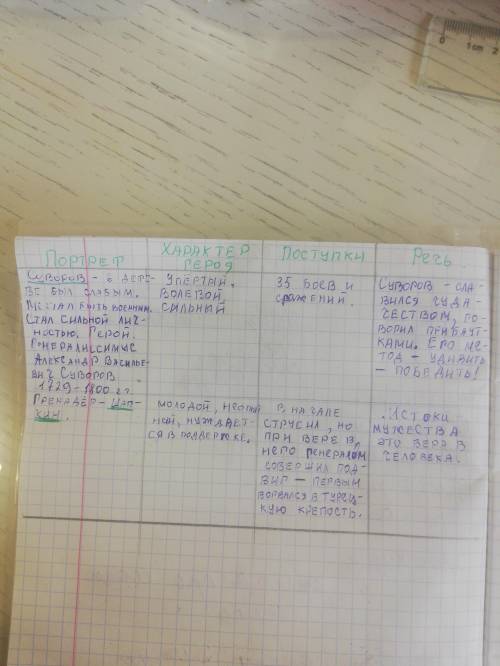 0 1cm 2
Портрет
Характер
героя
Поступки
Речь
Суворов – в детс-
ве был слабым.
Мечтал быть военным.
Стал сильной лич-
ностью. Герой.
Генералиссимус
Александр Василье-
вич Суворов
1729-1800 гг.
Упёртый.
Волевой
Сильный
35 боев и
сражений.
Суворов – сла-
вился чуда-
чеством, го-
ворил прибаут-
ками. Его ме-
тод – удивить
– победить!
Гренадёр – Шап-
кин.
молодой, неопыт
ный, нуждает-
ся в поддержке.
В начале
струсил, но
при вере в
него генералом
совершил под-
виг – первым
ворвался в турец-
кую крепость.
Истоки
мужества
это вера в
человека.